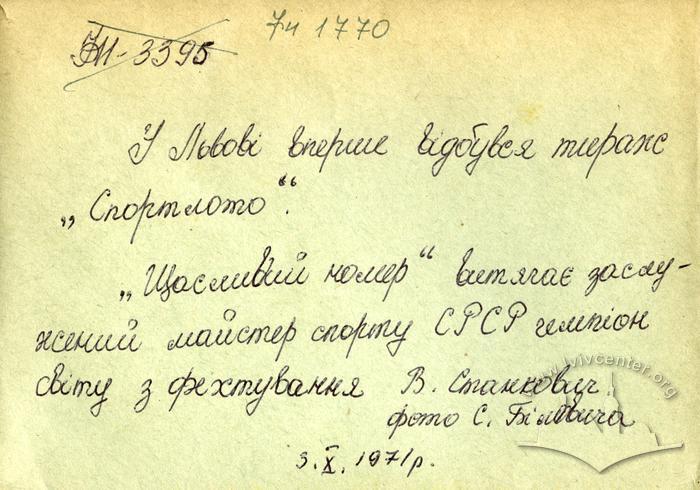 7ч 1770
ЖИ-3395
У Львові вперше відбувся тираж
„Спортлото“.
„Щасливий номер“ витягає заслу-
жений майстер спорту СРСР чемпіон
світу з фехтування В. Станкович.
фото С. Біловича
3.X.1971р.
www.lvivcenter.org